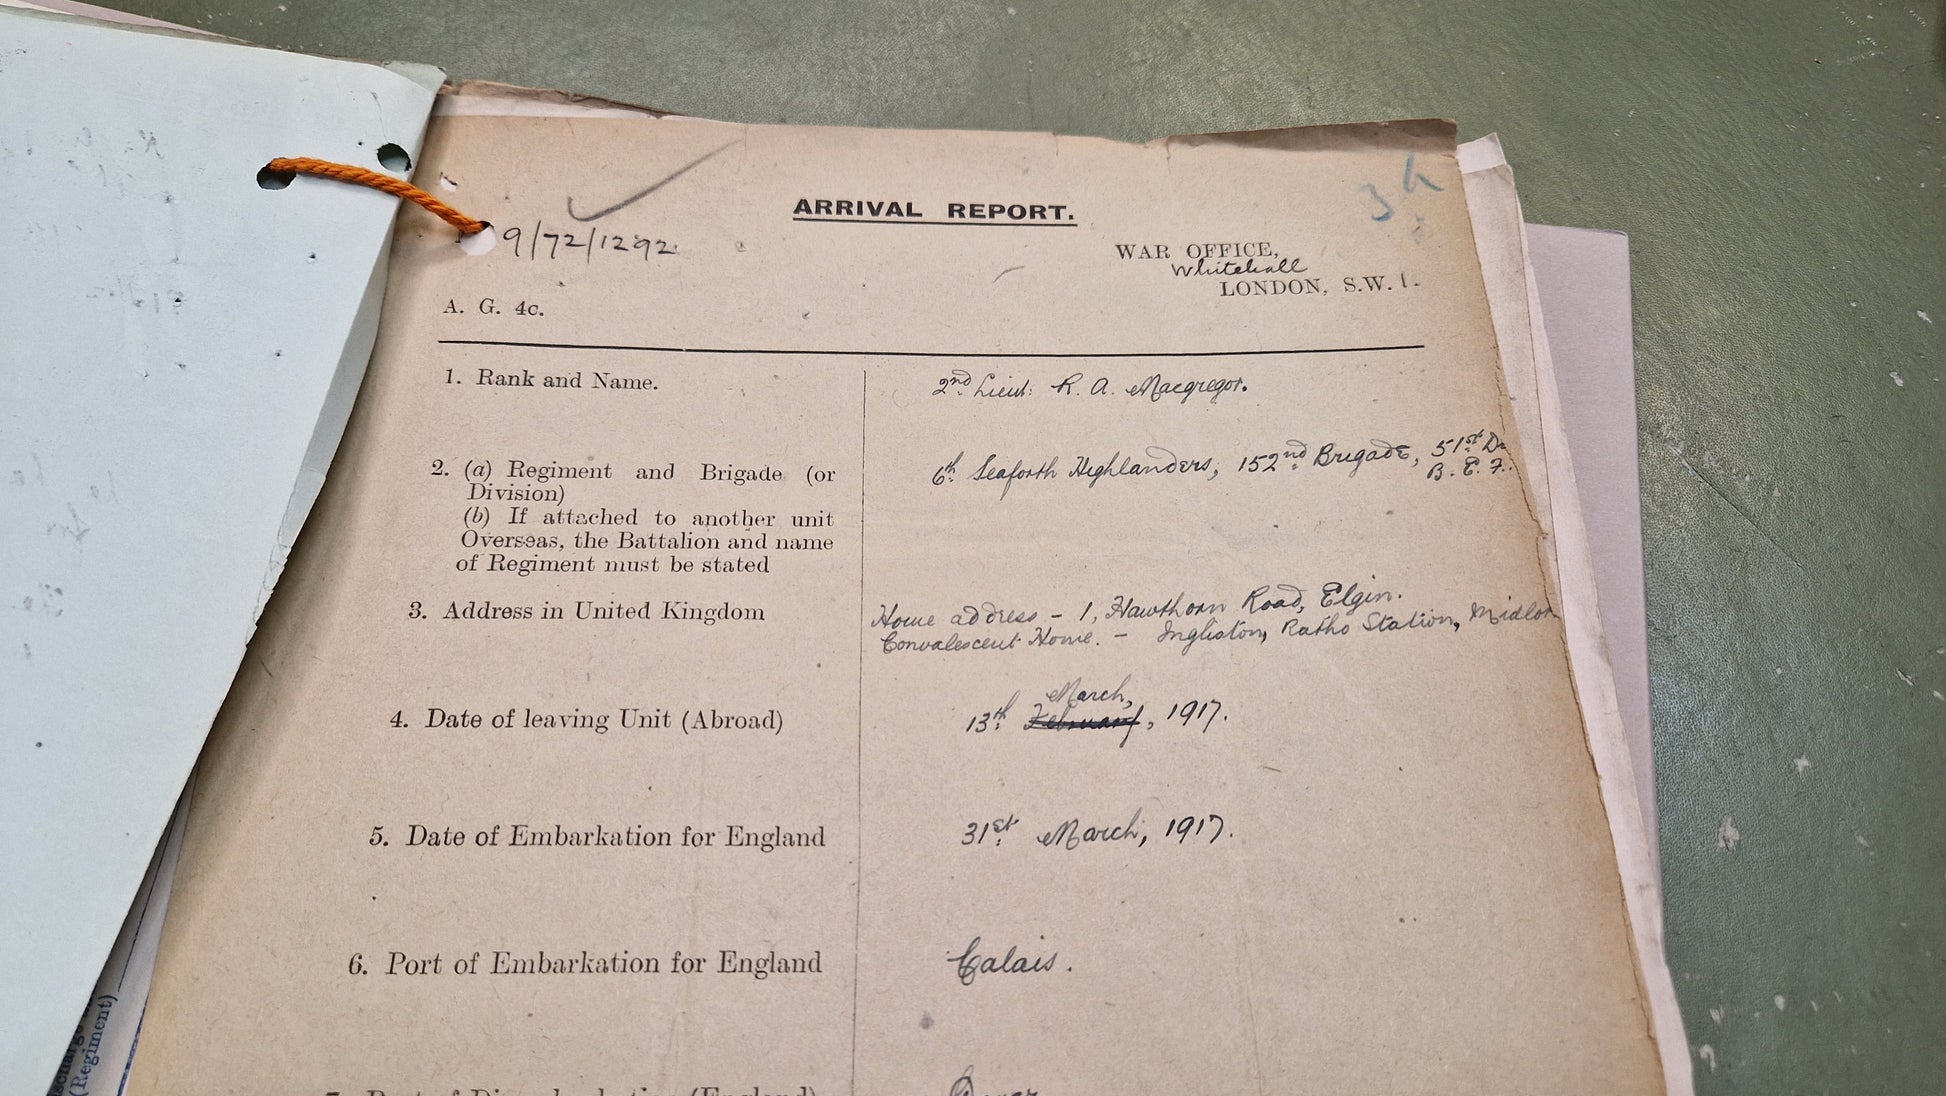 ARRIVAL REPORT.
9/72/1292
WAR OFFICE,
Whitehall
LONDON, S.W. 1.
A. G. 4c.
1. Rank and Name.
2nd Lieut: R. A. Macgregor.
2. (a) Regiment and Brigade (or
Division)
(b) If attached to another unit
Overseas, the Battalion and name
of Regiment must be stated
6th Seaforth Highlanders, 152nd Brigade, 51st
B. E. F.
3. Address in United Kingdom
Home address - 1, Hawthorn Road, Elgin.
Convalescent Home. - Ingliston, Ratho Station, Midlot
4. Date of leaving Unit (Abroad)
March,
13th February, 1917.
5. Date of Embarkation for England
31st March, 1917.
6. Port of Embarkation for England
Calais.
(England)
(Regiment)